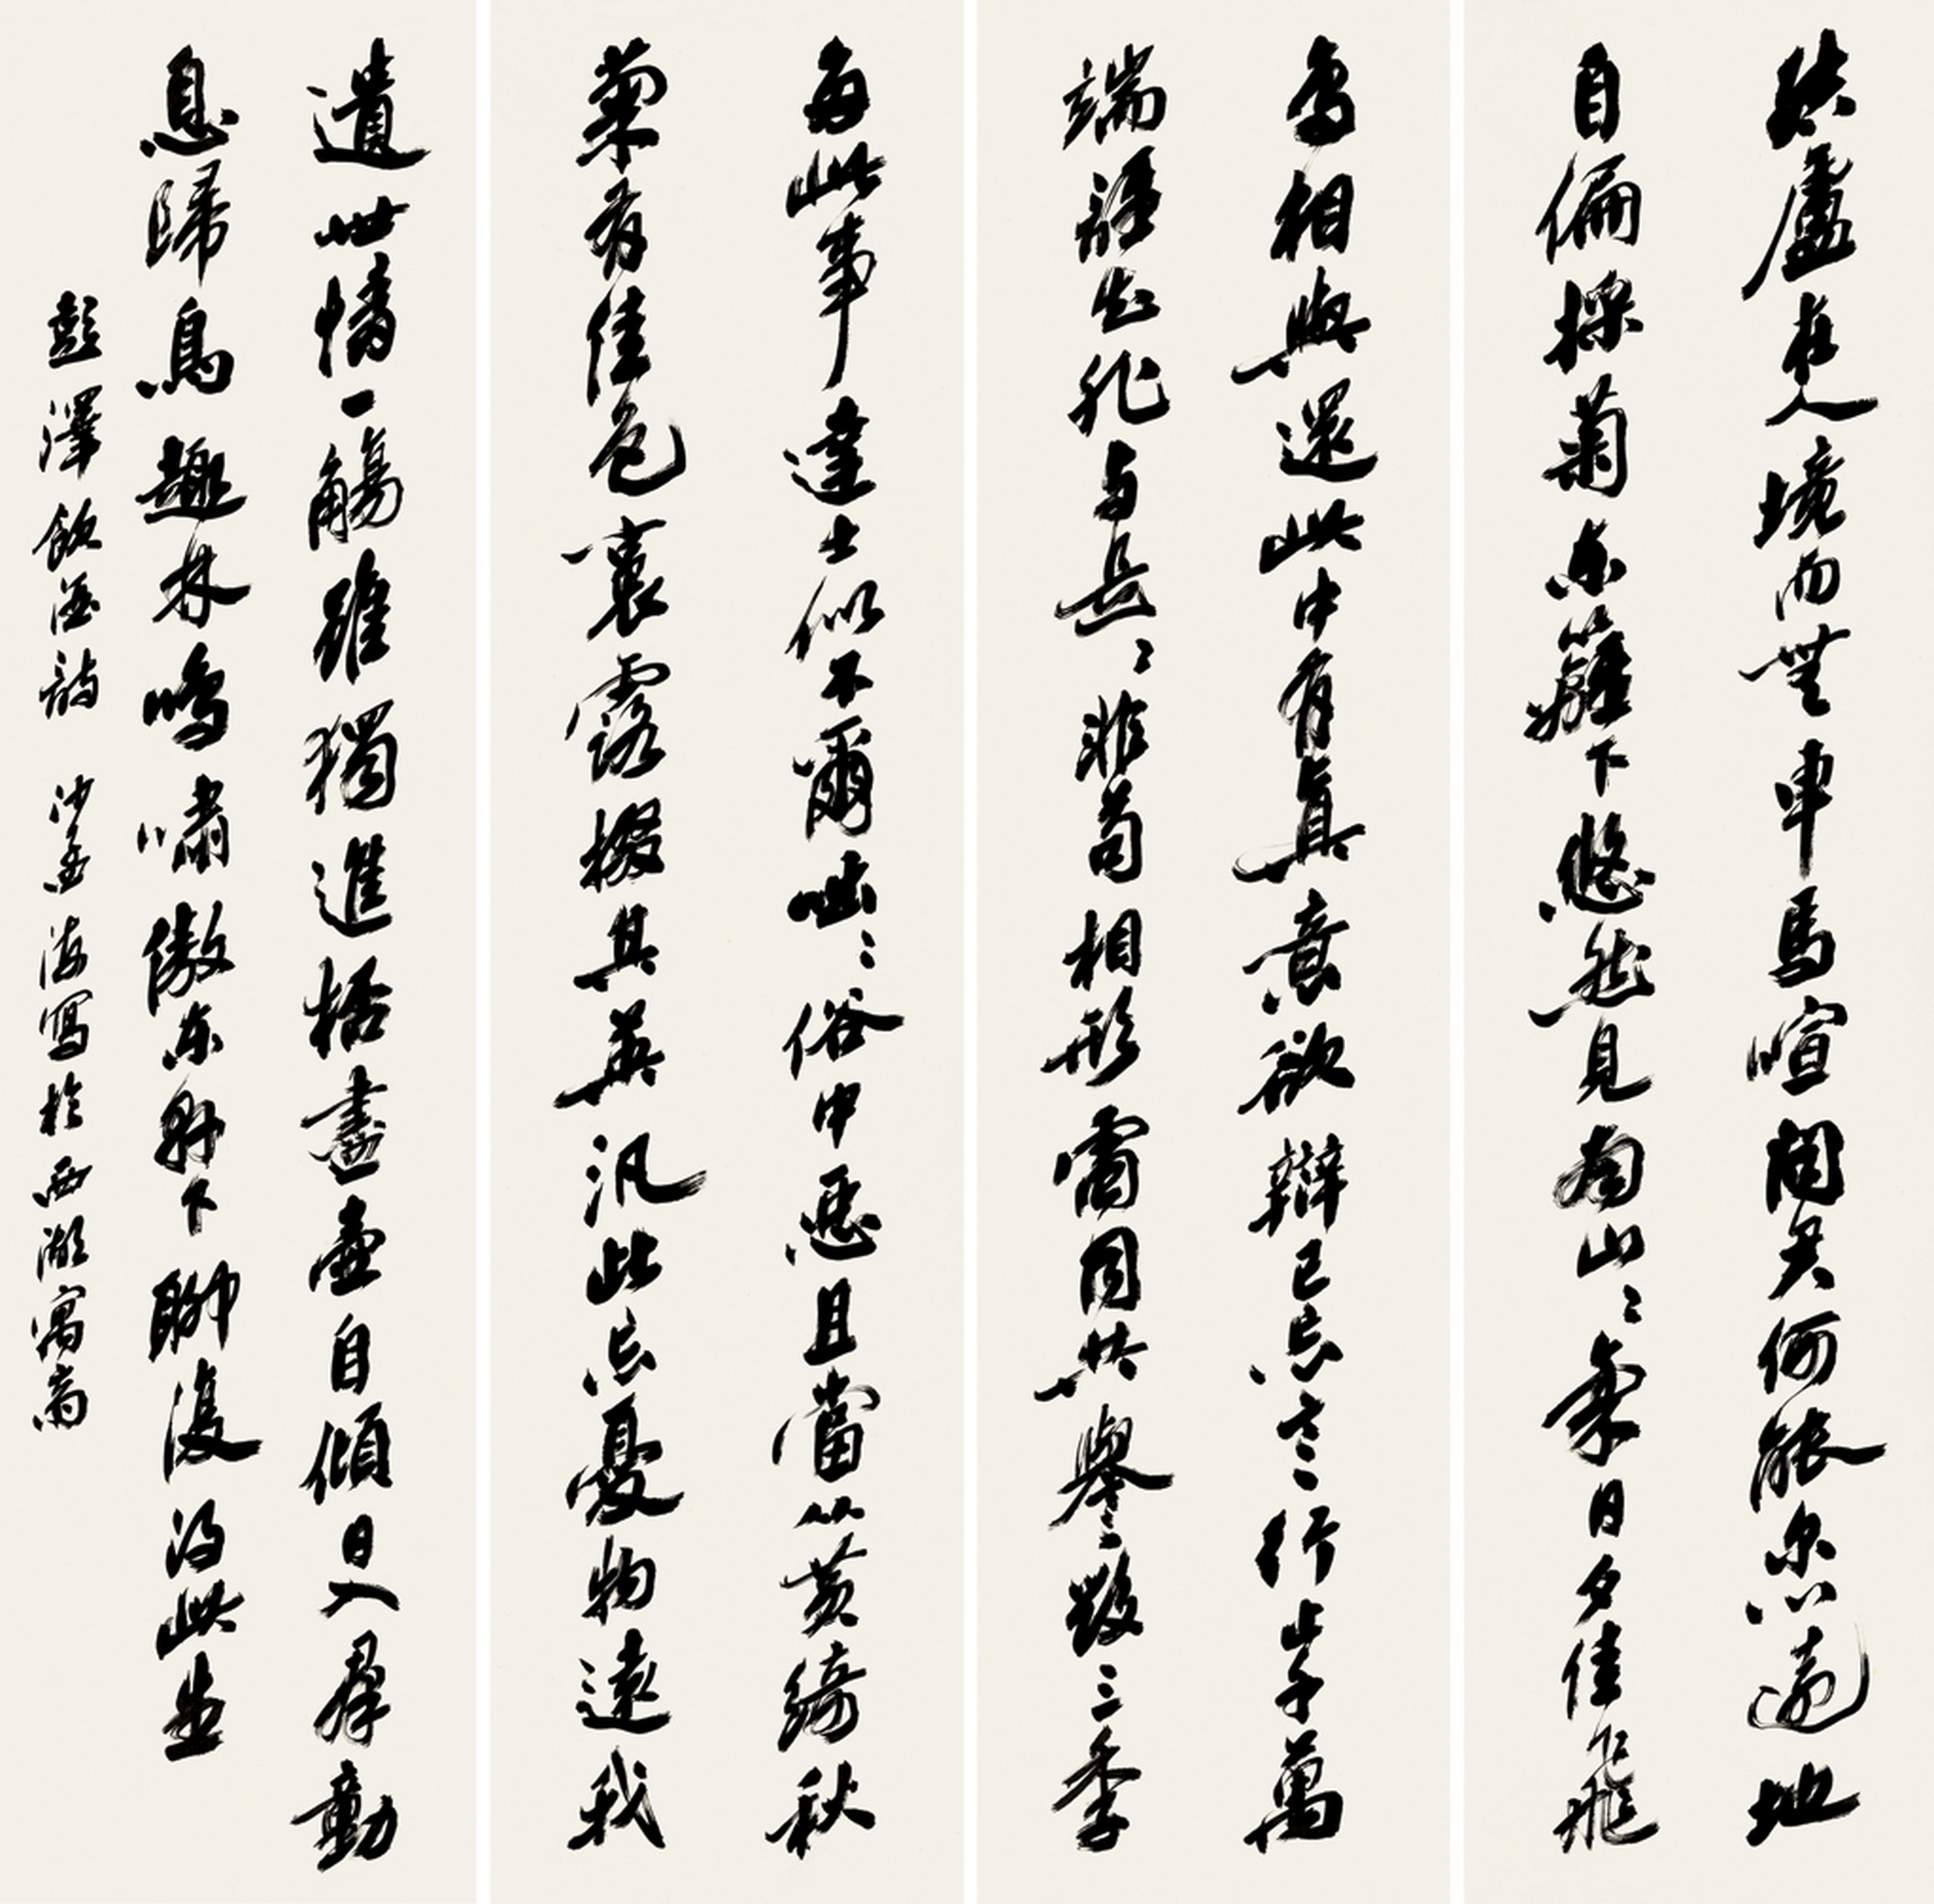 結廬在人境而無車馬喧問君何能尔心遠地
自偏採菊東籬下悠然見南山〻氣日夕佳飛
鳥相與還此中有真意欲辯已忘言行止千萬
端誰知非与是〻非苟相形雷同共譽毀三季
每此事達士似不爾咄〻俗中惡且當從黃綺秋
菊有佳色裛露掇其英汎此忘憂物遠我
遺世情一觴雖獨進桮盡壺自傾日入群動
息歸鳥趣林鳴嘯傲東軒下聊復得此生
彭澤飲酒詩 沙孟海寫於西湖寓齋